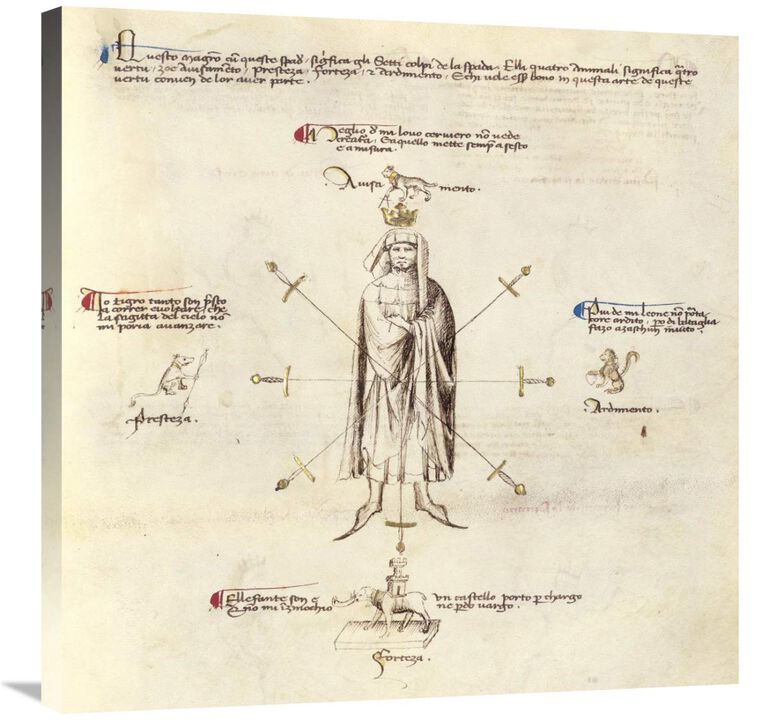 Questo Magro cu queste spad significa gli Setti colpi de la spada. Elli quatro animali significa qtro
vertu, zoe avisameto, presteza, forteza, & ardimento, E chi vole ess bono in questa arte de queste
vertu conven de lor aver parte.
Meglio d mi lovo cerviero no vede
creatura, E aquello mette semp a sesto
e a misura.
Avisa mento.
Io tigro tanto son psto
a correr e voltare, che
la sagitta del cielo no
mi poria avanzare.
Piu de mi leone no porta
core ardito, po di bataglia
fazo a zaschun invito.
Presteza.
Ardimento.
Ellefante son e un castello porto p chargo
E no mi inzinochio ne pdo vargo.
Forteza.